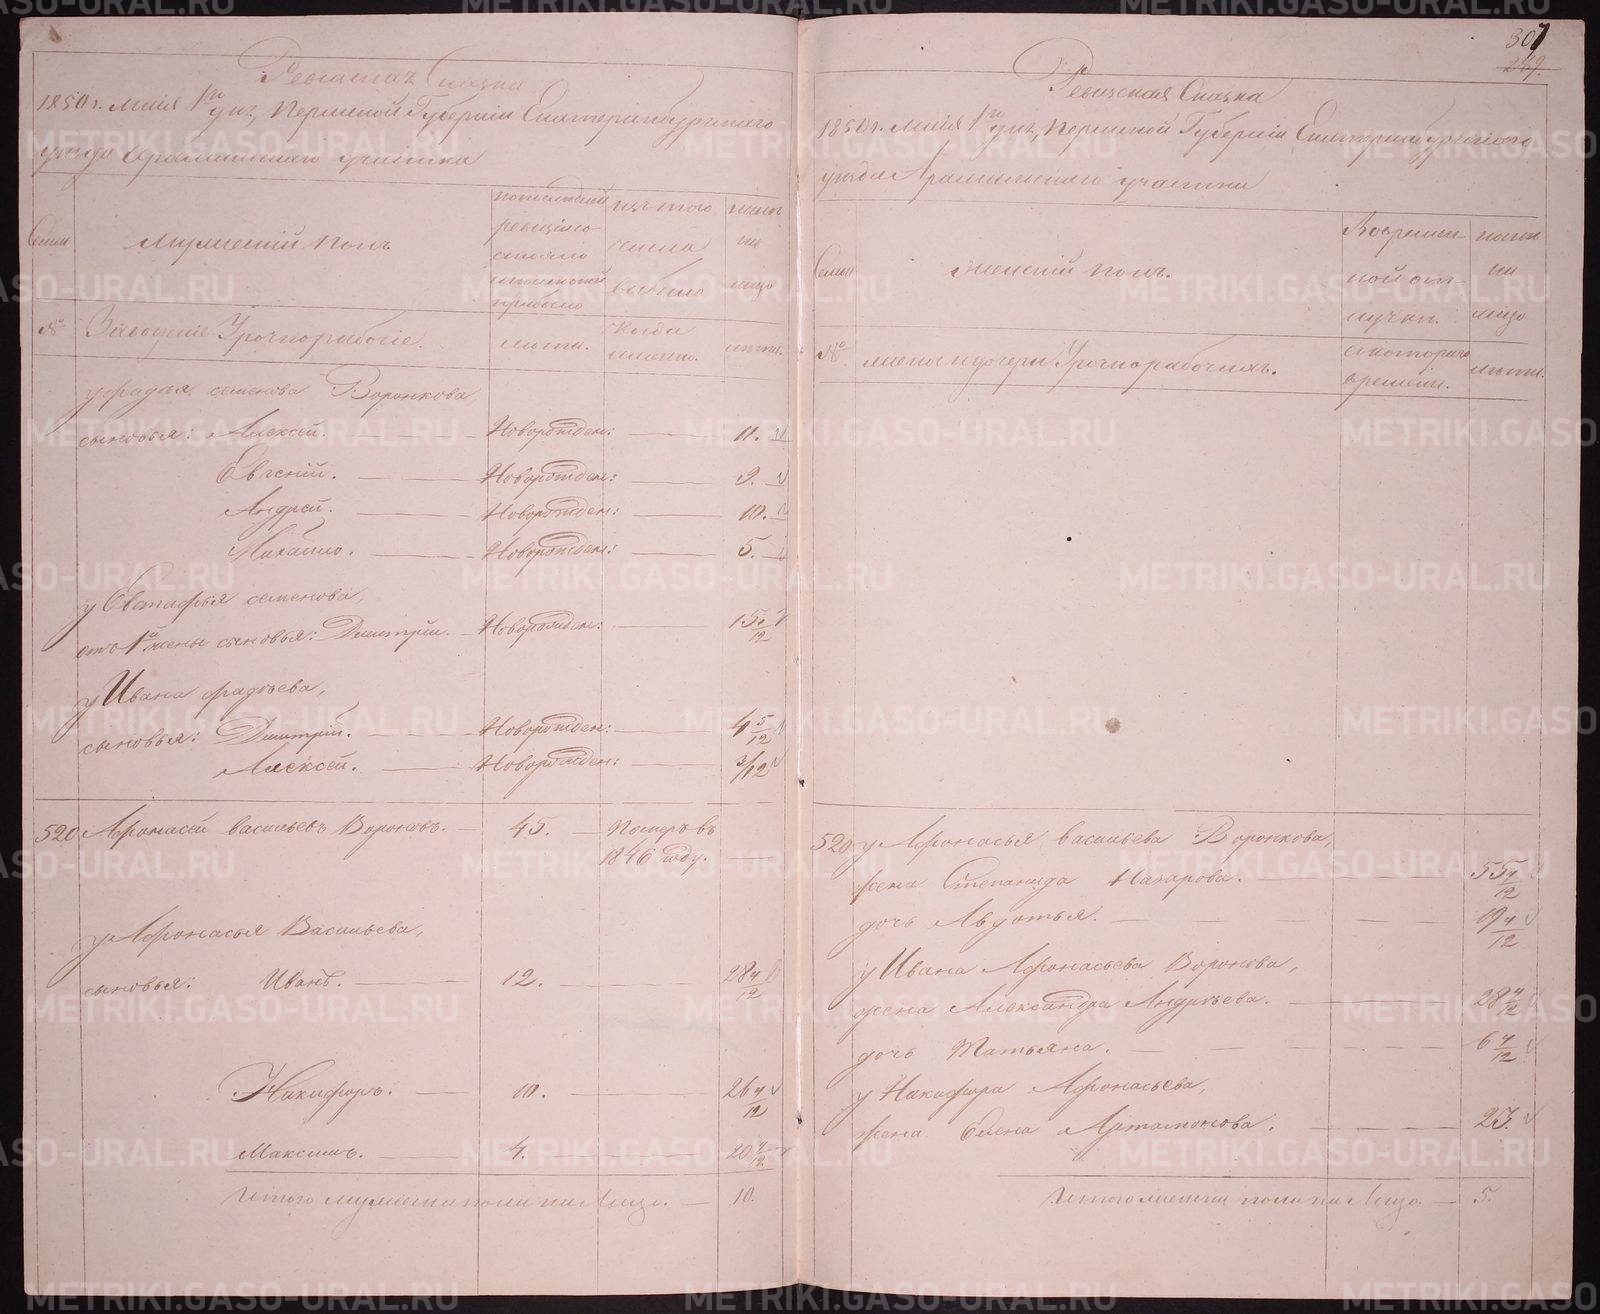 Ревизская Сказка
1850 г. Мая 1го дня, Пермской Губернии Екатеринбургскаго
уезда Арамильскаго участка
Семьи
Мужеский полъ.
По последней ревизии состояло и после той прибыло
Изъ того числа выбыло
Ныне на лицо
№
Заводские Урочнорабочие.
лета.
Когда именно.
лета.
у Фадея семенова Воронкова,
сыновья: Алексей. Новорожден: 11.
Евгений. Новорожден: 9.
Андрей. Новорожден: 10.
Михайло. Новорожден: 5.
у Евстафья семенова,
отъ 1й жены сыновья: Дмитрий. Новорожден: 15/12
у Ивана фадеева,
сыновья: Дмитрий. Новорожден: 4 5/12
Алексей. Новорожден: 3/12
520 Афонасей васильевъ Вороновъ. 45. Померъ въ
1846 году.
у Афонасья Васильева,
сыновья: Иванъ. 12. 28 4/12
Никифоръ. 10. 26 4/12
Максимъ. 4. 20 4/12
Итого мужеска пола на Лицо. 10.
307
249.
Ревизская Сказка
1850 г. Мая 1го дня, Пермской Губернии Екатеринбургскаго
уезда Арамильскаго участка
Семьи
Женский полъ.
Во временной отлучке.
Ныне на лицо
№
жены и дочери Урочнорабочихъ.
с котораго времени.
лета.
520 у Афонасья васильева Воронкова,
жена Степанида Назарова. 55 4/12
дочь Авдотья. 19 4/12
у Ивана Афонасьева Воронова,
жена Александра Андреева. 28 4/12
дочь Татьяна. 6 4/12
у Никифора Афонасьева,
жена Елена Артамонова. 23.
Итого женска пола на Лицо. 5.
METRIKI.GASO-URAL.RU